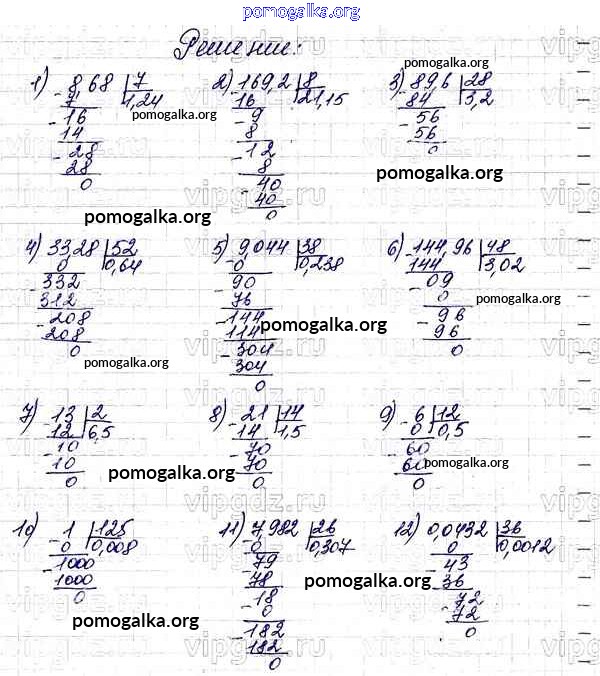 pomogalka.org
Решение:
1) 8,68 | 7 2) 169,2 | 8 3) 89,6 | 28
7 | 1,24 16 | 21,15 84 | 3,2
pomogalka.org
pomogalka.org
16 9 56
14 8 56
28 12 0
28 8
0 40
40
0
pomogalka.org
pomogalka.org
4) 33,28 | 52 5) 9,044 | 38 6) 144,96 | 48
0 | 0,64 0 | 0,238 144 | 3,02
332 90 09
312 76 0
208 144 96
208 114 96
0 304 0
304
0
pomogalka.org
pomogalka.org
pomogalka.org
7) 13 | 2 8) 21 | 14 9) 6 | 12
12 | 6,5 14 | 1,5 0 | 0,5
10 70 60
10 70 60
0 0 0
pomogalka.org
pomogalka.org
10) 1 | 125 11) 7,982 | 26 12) 0,0432 | 36
0 | 0,008 0 | 0,307 0 | 0,0012
1000 79 43
1000 78 36
0 18 72
0 72
182 0
182
0
pomogalka.org
pomogalka.org
vipgdz.ru